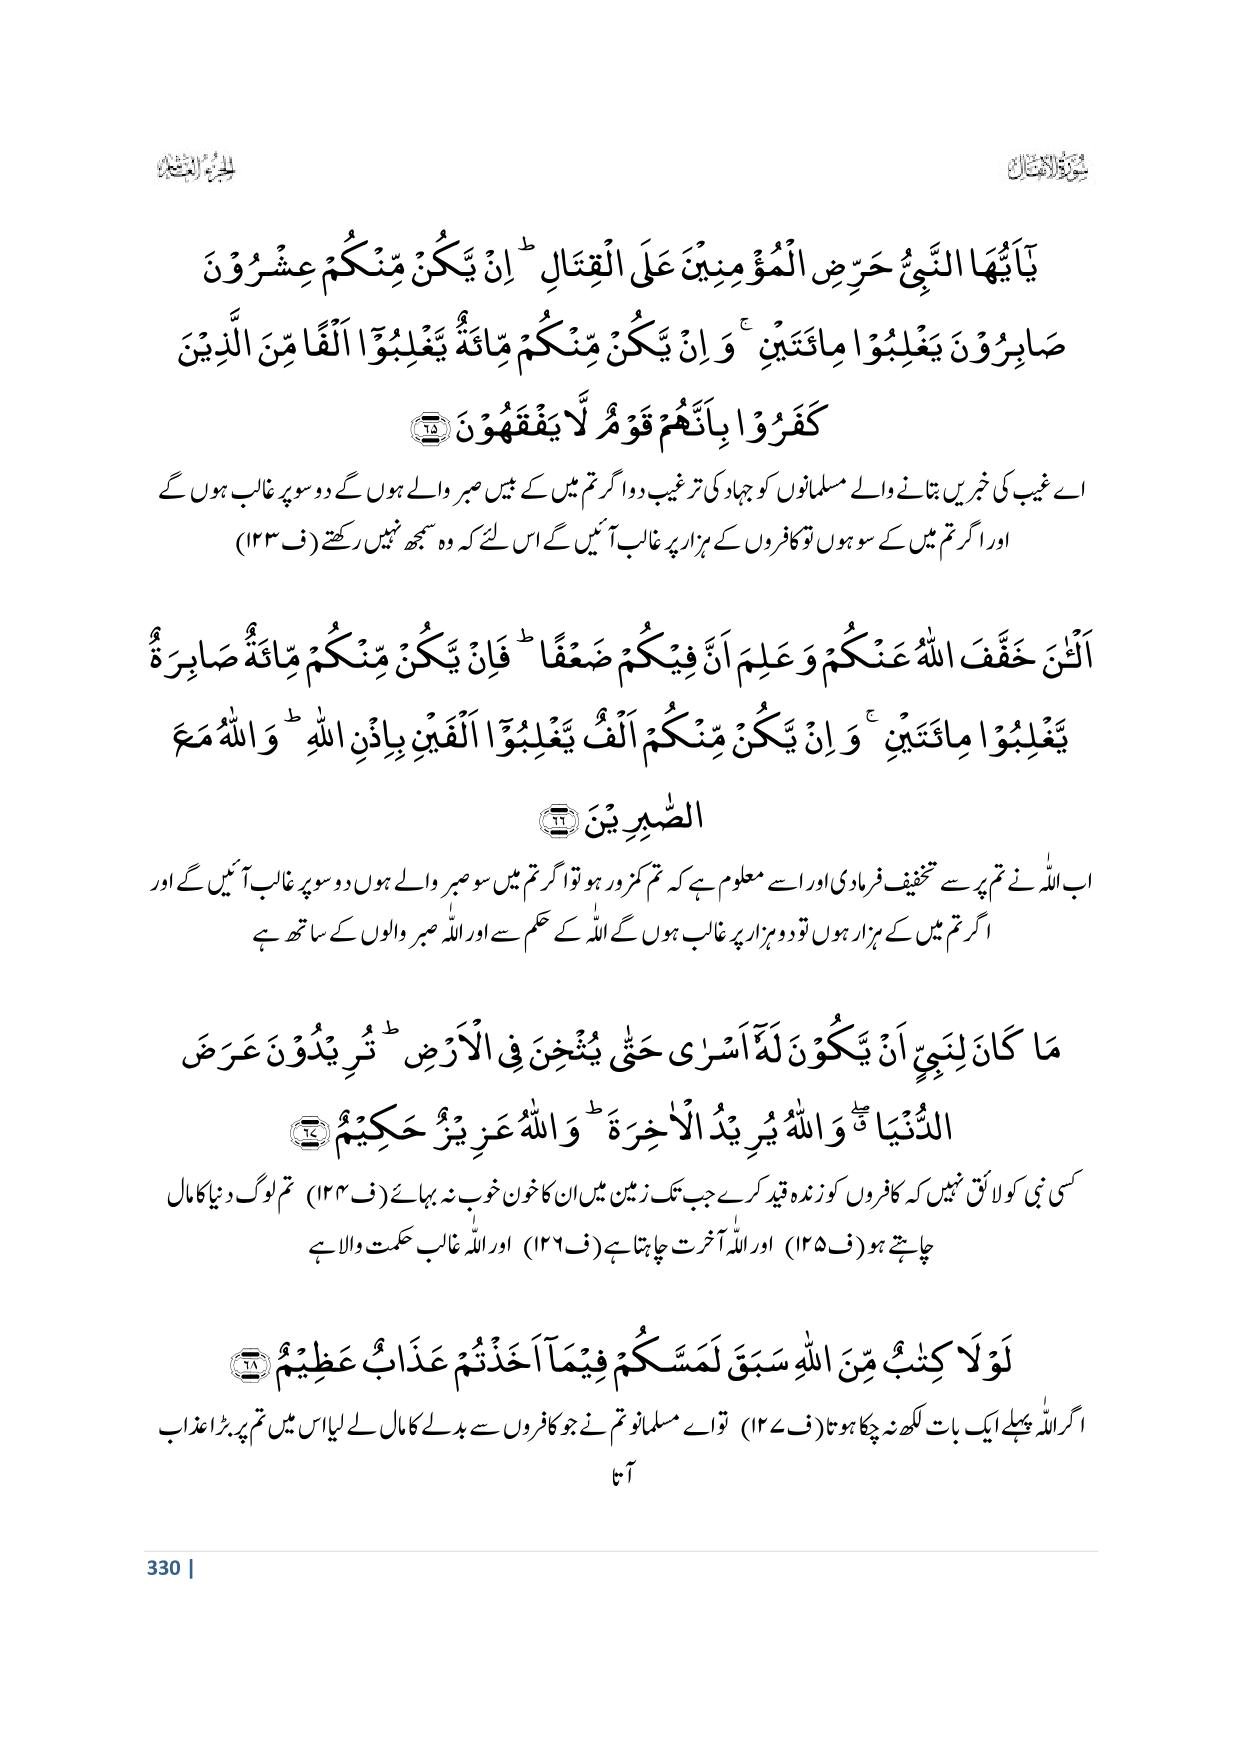 سُوْرَةُ الْاَنْفَال
الجزء العاشر
يٰۤاَيُّهَا النَّبِىُّ حَرِّضِ الْمُؤْمِنِيْنَ عَلَى الْقِتَالِ ؕ اِنْ يَّكُنْ مِّنْكُمْ عِشْرُوْنَ
صَابِرُوْنَ يَغْلِبُوْا مِائَتَيْنِ ۚ وَ اِنْ يَّكُنْ مِّنْكُمْ مِّائَةٌ يَّغْلِبُوْۤا اَلْفًا مِّنَ الَّذِيْنَ
كَفَرُوْا بِاَنَّهُمْ قَوْمٌ لَّا يَفْقَهُوْنَ ﴿۶۵﴾
اے غیب کی خبریں بتانے والے مسلمانوں کو جہاد کی ترغیب دو اگر تم میں کے بیس صبر والے ہوں گے دو سو پر غالب ہوں گے
اور اگر تم میں کے سو ہوں تو کافروں کے ہزار پر غالب آئیں گے اس لئے کہ وہ سمجھ نہیں رکھتے (ف۱۲۳)
اَلْـٰٔنَ خَفَّفَ اللّٰهُ عَنْكُمْ وَ عَلِمَ اَنَّ فِيْكُمْ ضَعْفًا ؕ فَاِنْ يَّكُنْ مِّنْكُمْ مِّائَةٌ صَابِرَةٌ
يَّغْلِبُوْا مِائَتَيْنِ ۚ وَ اِنْ يَّكُنْ مِّنْكُمْ اَلْفٌ يَّغْلِبُوْۤا اَلْفَيْنِ بِاِذْنِ اللّٰهِ ؕ وَ اللّٰهُ مَعَ
الصّٰبِرِيْنَ ﴿۶۶﴾
اب اللّٰہ نے تم پر سے تخفیف فرمادی اور اسے معلوم ہے کہ تم کمزور ہو تو اگر تم میں سو صبر والے ہوں دو سو پر غالب آئیں گے اور
اگر تم میں کے ہزار ہوں تو دو ہزار پر غالب ہوں گے اللّٰہ کے حکم سے اور اللّٰہ صبر والوں کے ساتھ ہے
مَا كَانَ لِنَبِىٍّ اَنْ يَّكُوْنَ لَهٗۤ اَسْرٰى حَتّٰى يُثْخِنَ فِى الْاَرْضِ ؕ تُرِيْدُوْنَ عَرَضَ
الدُّنْيَا ۖۗ وَ اللّٰهُ يُرِيْدُ الْاٰخِرَةَ ؕ وَ اللّٰهُ عَزِيْزٌ حَكِيْمٌ ﴿۶۷﴾
کسی نبی کو لائق نہیں کہ کافروں کو زندہ قید کرے جب تک زمین میں ان کا خون خوب نہ بہائے (ف۱۲۴) تم لوگ دنیا کا مال
چاہتے ہو (ف۱۲۵) اور اللّٰہ آخرت چاہتا ہے (ف۱۲۶) اور اللّٰہ غالب حکمت والا ہے
لَوْ لَا كِتٰبٌ مِّنَ اللّٰهِ سَبَقَ لَمَسَّكُمْ فِيْمَاۤ اَخَذْتُمْ عَذَابٌ عَظِيْمٌ ﴿۶۸﴾
اگر اللّٰہ پہلے ایک بات لکھ نہ چکا ہوتا (ف۱۲۷) تو اے مسلمانو تم نے جو کافروں سے بدلے کا مال لے لیا اس میں تم پر بڑا عذاب
آتا
330 |